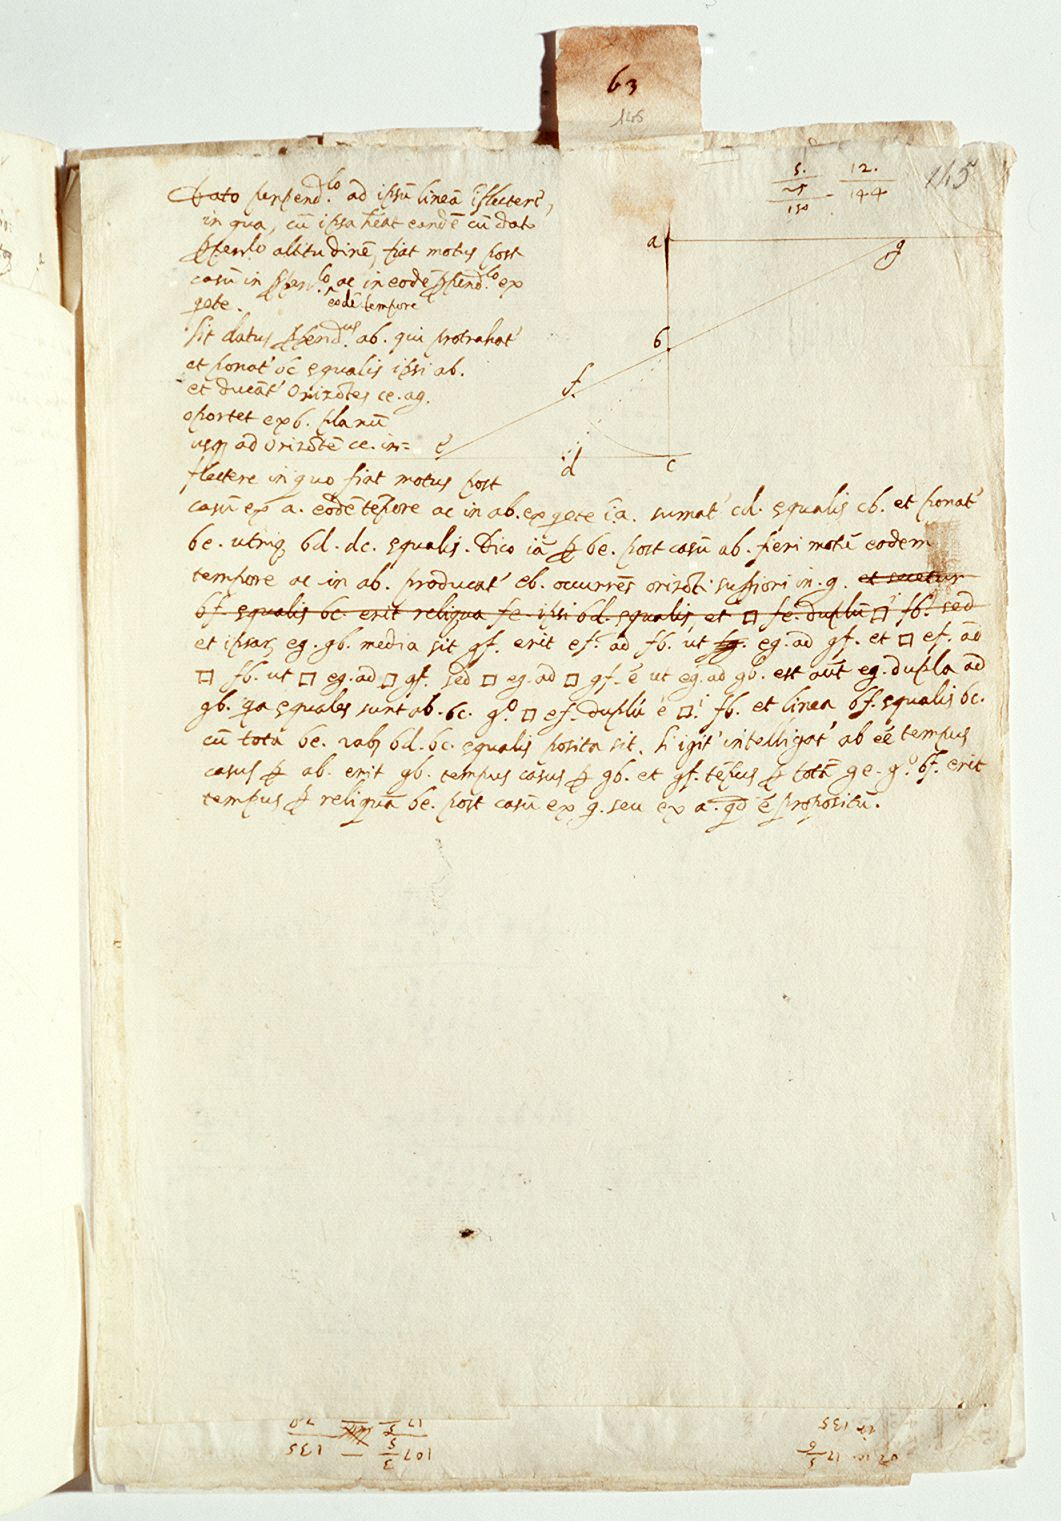 63
146
145
5. 12.
25 144
150
Dato perpend.lo ad ipsū lineā īflectere,
in qua, cū ipsa hēat eandē cū dato
ꝑpend.lo altitudinē, fiat motus post
casū in ꝑpend.lo ac in eodē ꝑpend.lo ex
eodē tempore
qete.
Sit datus ꝑpend.us ab. qui protrahat'
et ponat' bc equalis ipsi ab.
et ducāt' Orizōtes ce. ag.
oportet ex b. planū
usq ad orizōtē ce. in=
flectere in quo fiat motus post
casū ex a. eodē tēpore ac in ab. ex qete ī a. sumat' cd. equalis cb. et ponat'
be. utriq bd. dc. equalis. Dico iā ꝑ be. post casū ab. fieri motū eodem
tempore ac in ab. producat' eb. occurrēs orizōti supiori in. g. et secetur
bf. equalis bc. erit reliqua fe. ipsi bd. equalis et □ fe. duplū □i fb. sed
et ipsaꝝ eg. gb. media sit gf. erit ef. ad fb. ut eg. ad gf. et □ ef. ad
□ fb. ut □ eg. ad □ gf. sed □ eg. ad □ gf. ē ut eg. ad gb. est aūt eg. dupla ad
gb. qa equales sunt ab. bc. go □ ef. duplū ē □i fb. et linea bf. equalis bc.
cū tota be. bd. bc. equalis posita sit. Si igit' intelligat' ab eē tempus
casus ꝑ ab. erit gb. tempus casus ꝑ gb. et gf. tēpus ꝑ totā ge. go bf. erit
tempus ꝑ reliquā be. post casū ex g. seu ex a. qd ē propositū.
a g
b
f
e d c
107 5/3 — 135
135